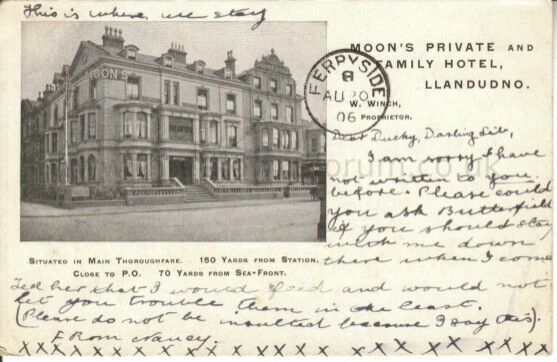 This is where we stay
MOON'S
MOON'S PRIVATE AND
FAMILY HOTEL,
LLANDUDNO.
W. WINCH,
PROPRIETOR.
FERRYSIDE
B
AU 20
06
Dear Ducky, Darling Sib,
I am sorry I have
not written to you
before. Please could
you ask Butterfield
if you should stay
with me down
there when I come
SITUATED IN MAIN THOROUGHFARE. 150 YARDS FROM STATION.
CLOSE TO P.O. 70 YARDS FROM SEA-FRONT.
Tell her that I would feed and would not
let you trouble them in the least.
(Please do not be insulted because I say this).
From Nancy.
x x x x x x x x x x x x x x x x x x x x x x